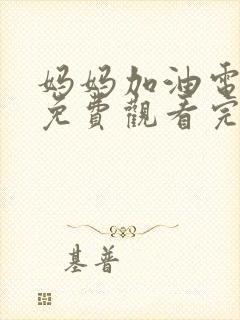 妈妈加油電
免費觀看完
基普